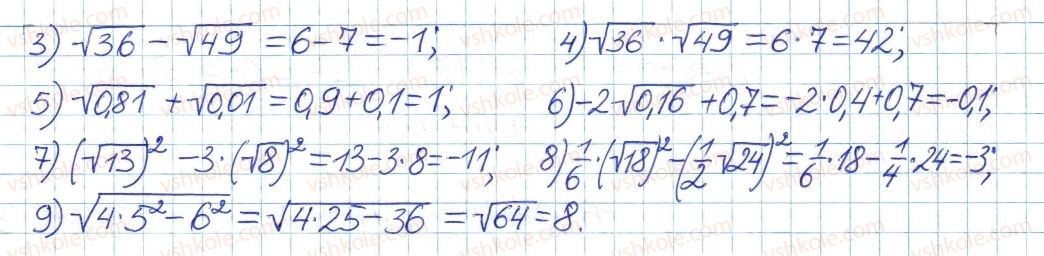 3) √36 − √49 = 6 − 7 = −1; 4) √36 · √49 = 6 · 7 = 42;
5) √0,81 + √0,01 = 0,9 + 0,1 = 1; 6) −2√0,16 + 0,7 = −2 · 0,4 + 0,7 = −0,1;
7) (√13)² − 3 · (√8)² = 13 − 3 · 8 = −11; 8) 1/6 · (√18)² − (1/2 √24)² = 1/6 · 18 − 1/4 · 24 = −3;
9) √(4 · 5² − 6²) = √(4 · 25 − 36) = √64 = 8.
vshkole.com